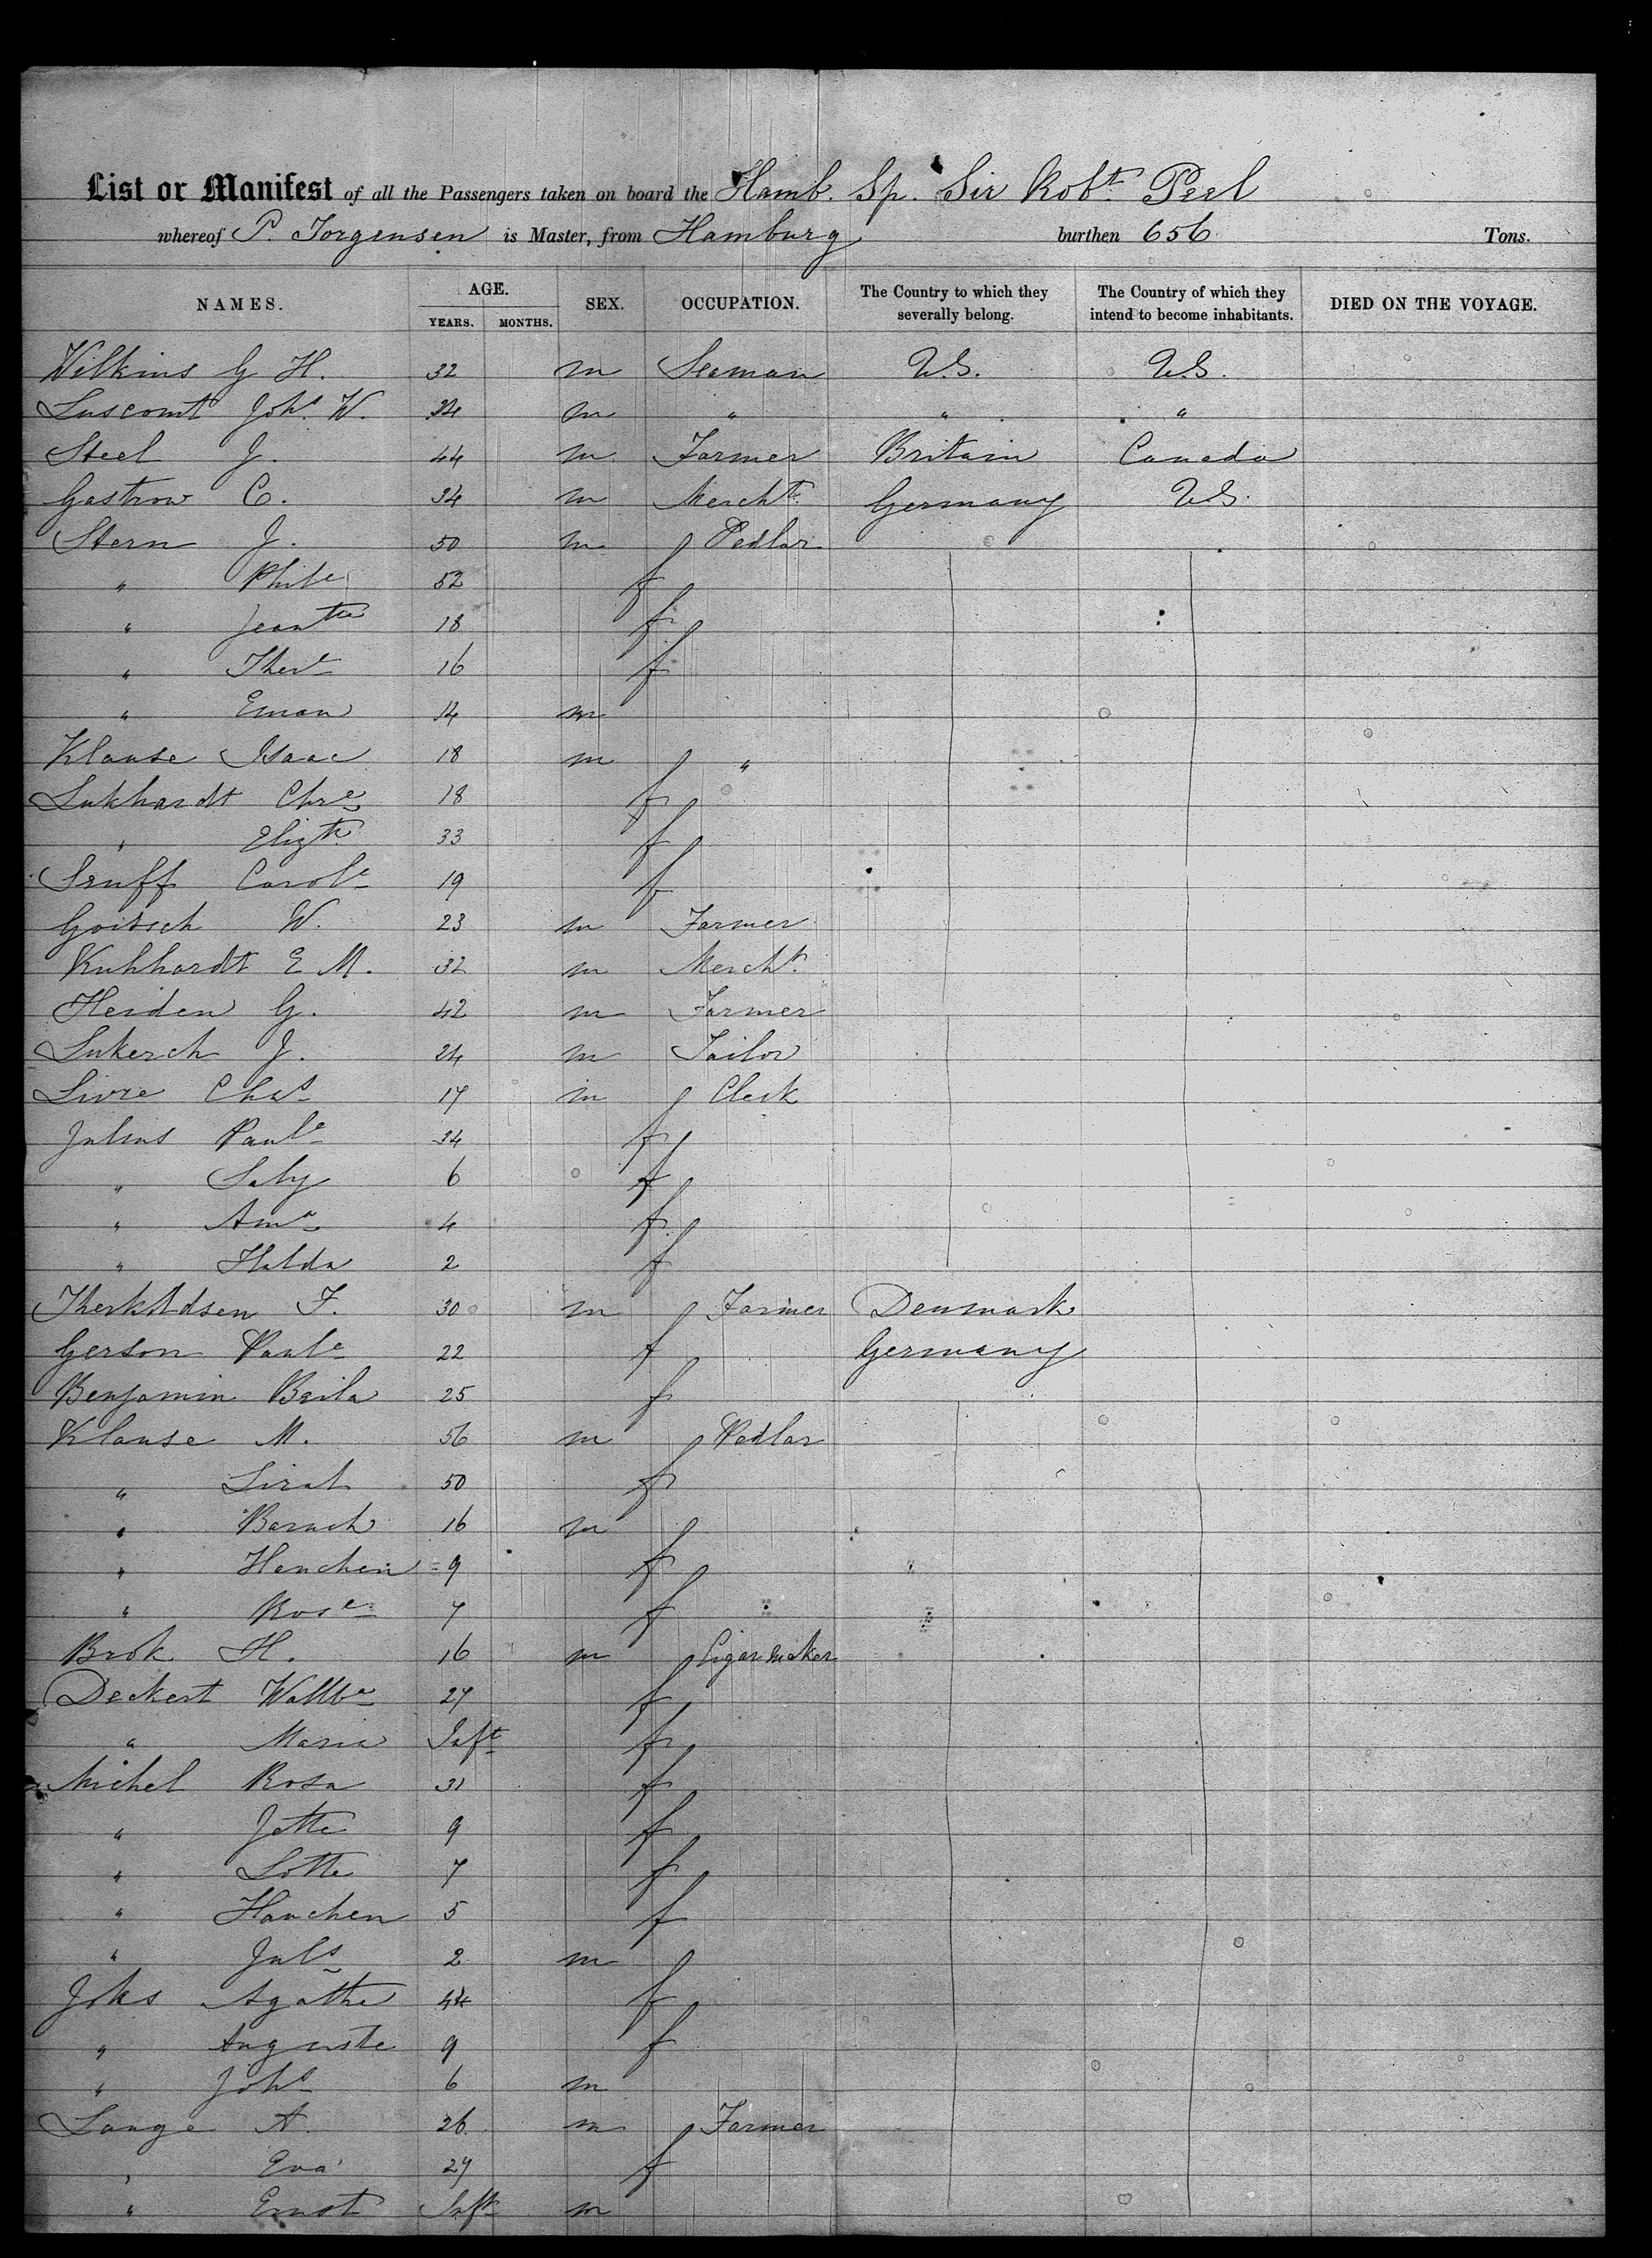 List or Manifest of all the Passengers taken on board the Hamb. Sp. Sir Robt. Peel
whereof P. Jorgensen is Master, from Hamburg burthen 656 Tons.
NAMES. AGE. YEARS. MONTHS. SEX. OCCUPATION. The Country to which they severally belong. The Country of which they intend to become inhabitants. DIED ON THE VOYAGE.
Wilkins G H. 32 m Seaman U.S. U.S.
Luscomt Johs. W. 24 m " " "
Steel J. 44 m Farmer Britain Canada
Gastrow C. 34 m Mercht. Germany U.S.
Stern J. 50 m Pedlar
" Phile 52 f
" Jeantte 18 f
" There 16 f
" Eman 14 m
Klause Isaac 18 m "
Lukhardt Chre 18 f
" Elizth 33 f
Sruff Carole 19 f
Goitsch W. 23 m Farmer
Kuhhardt E M. 32 m Mercht.
Heiden G. 42 m Farmer
Lukerch J. 24 m Tailor
Livre Chas 17 m Clerk
Julius Paule 34 f
" Saly 6 f
" Ama 4 f
" Hulda 2 f
Therkildsen F. 30 m Farmer Denmark
Gerson Paule 22 f Germany
Benjamin Beila 25 f
Klause M. 56 m Pedlar
" Sirah 50 f
" Baruch 16 m
" Hanchen 9 f
" Rose 7 f
Brok H. 16 m Cigar maker
Deckert Wallba 27 f
" Maria Inft f
Michel Rosa 31 f
" Jette 9 f
" Lotte 7 f
" Hanchen 5 f
" Juls 2 m
Joks Agathe 44 f
" Auguste 9 f
" Johs 6 m
Lange A. 26 m Farmer
" Eva 27 f
" Ernst Inft m